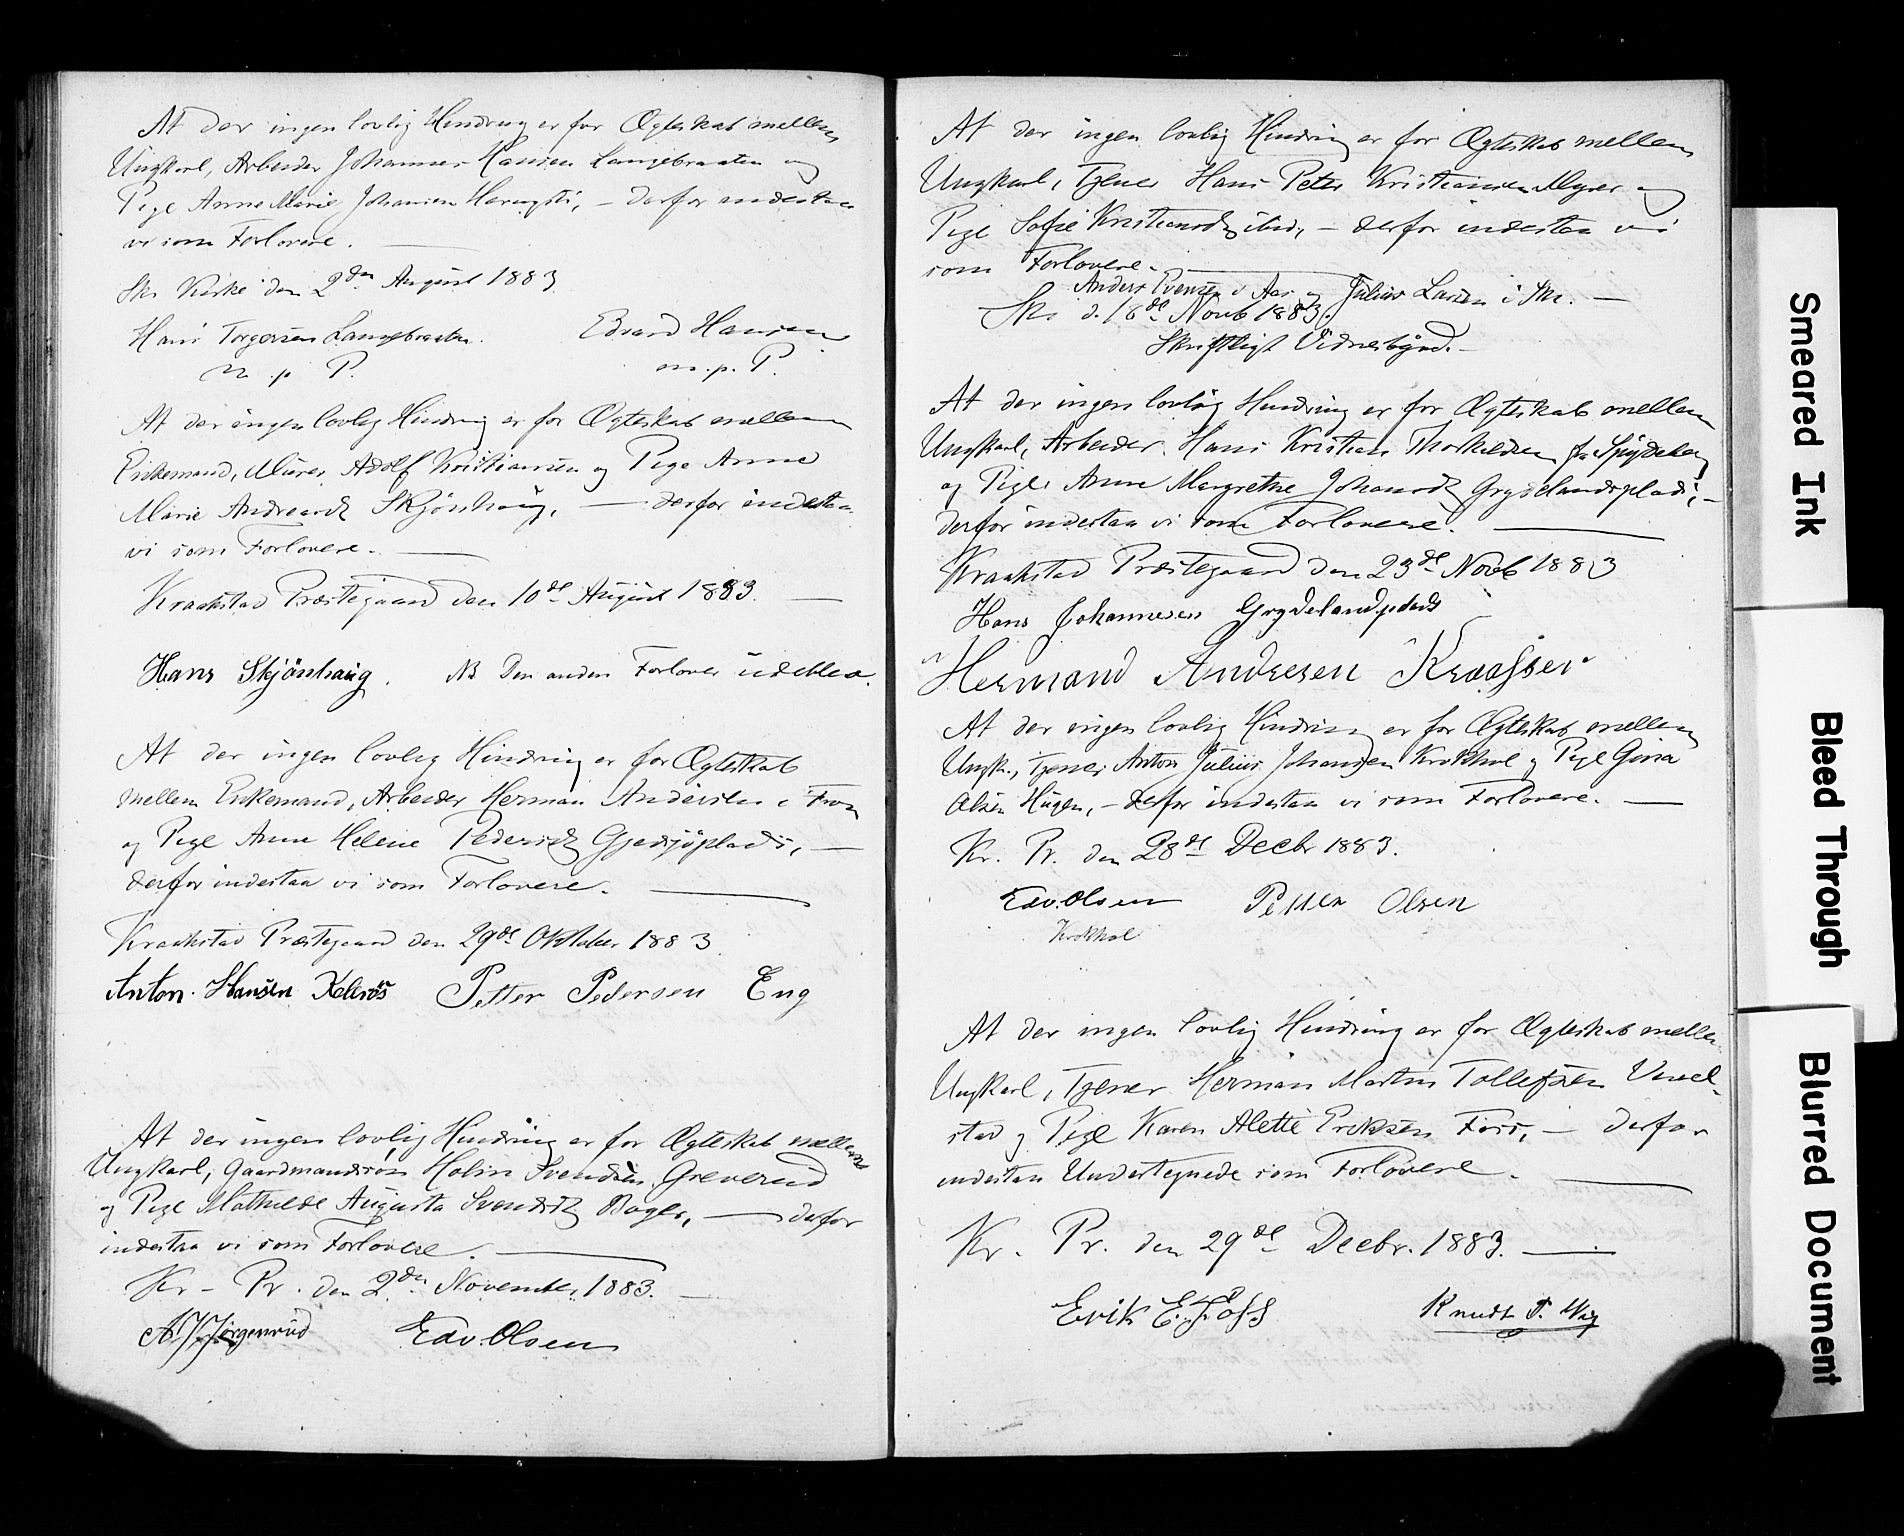 At der ingen lovlig Hindring er for Ægteskab mellem
Ungkarl, Arbeider Johannes Hansen Langebraaten og
Pige Anne Marie Johansen - derfor indestaa
vi som Forlovere.
Ski Kirke den 2den August 1883
Hans Torgersen Langebraaten. Edvard Hansen
m. p. P. m. p. P.
At der ingen lovlig Hindring er for Ægteskab mellem
Enkemand, Murer Adolf Kristiansen og Pige Anne
Marie Andreasd Skjönhaug, - derfor indestaa
vi som Forlovere.
Kraakstad Præstegaard den 10de August 1883.
Hans Skjönhaug. NB Den anden Forlover udeblev.
At der ingen lovlig Hindring er for Ægteskab
mellem Enkemand, Arbeider Herman Andersen i Fron
og Pige Anne Helene Pedersd Gjedsjöplads, -
derfor indestaa vi som Forlovere.
Kraakstad Præstegaard den 29de Oktober 1883
Anton Hansen Petter Pedersen Eng
At der ingen lovlig Hindring er for Ægteskab mellem
Ungkarl, Gaardmandssön Holm Svendsen Greverud
og Pige Mathilde Augusta Svendsd - derfor
indestaa vi som Forlovere.
Kr. Pr. den 2den November 1883.
Jörgenrud Edv. Olsen
At der ingen lovlig Hindring er for Ægteskab mellem
Ungkarl, Tjener Hans Peter Kristiansen Myrer og
Pige Sofie Kristiansd ibid, - derfor indestaa vi
som Forlovere.
Anders Evensen i Aas og Julius Larsen i Ski. -
Ski d. 18de Novb 1883.
Skriftligt Vidnesbyrd. -
At der ingen lovlig Hindring er for Ægteskab mellem
Ungkarl, Arbeider Hans Kristian Thorkildsen fra Spydeberg
og Pige Anne Margrethe Johansd Grydelandsplads, -
derfor indestaa vi som Forlovere.
Kraakstad Præstegaard den 23de Novb 1883
Hans Johannesen Grydelandsplads
Hermand Andresen
At der ingen lovlig Hindring er for Ægteskab mellem
Ungk., Tjener Anton Julius Johansen Krokhol og Pige Gina
Olsen Haugen, - derfor indestaa vi som Forlovere. -
Kr. Pr. den 28de Decbr 1883.
Edv. Olsen Petter Olsen
Krokhol
At der ingen lovlig Hindring er for Ægteskab mellem
Ungkarl, Tjener Herman Martin Tollefsen Vindel-
stad og Pige Karen Alette Eriksen Foss, - derfor
indestaa Undertegnede som Forlovere.
Kr. Pr. den 29de Decbr. 1883. -
Erik E. Foss Knudt
Smeared Ink
Bleed Through
Blurred Document